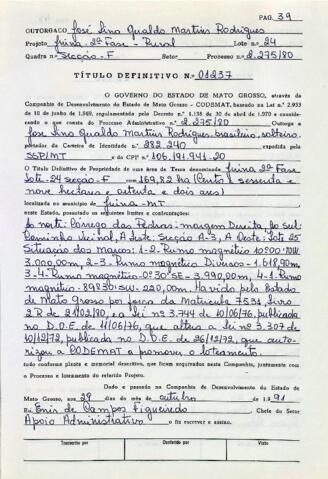 PAG. 39
OUTORGADO José Lino Gualdo Martins Rodrigues
Projeto Juina - 2ª Fase - Rural Lote n.º 24
Quadra n.º Secção - F Setor Processo n.º 2.275/80
TÍTULO DEFINITIVO N.º 01237
O GOVERNO DO ESTADO DE MATO GROSSO, através da
Companhia de Desenvolvimento do Estado de Mato Grosso - CODEMAT, baseado na Lei n.º 2.933
de 10 de junho de 1.969, regulamentada pelo Decreto n.º 1.138 de 30 de abril de 1.970 e considerando o que consta do Processo Administrativo n.º 2.275/80 Outorga a
José Lino Gualdo Martins Rodrigues, brasileiro, solteiro,
portador da Carteira de Identidade n.º 282.240 expedida pela
SSP/MT e do CPF n.º 106.191.941-20
O Título Definitivo de Propriedade de sua área de Terra denominada Juina 2ª Fase
Lote - 24 Secção - F com 169,82 ha (Cento e sessenta e
nove hectares e oitenta e dois ares)
localizada no município de Juina - MT
neste Estado, possuindo os seguintes limites e confrontações:
Ao norte: Córrego das Pedras: margem Direita, Ao Sul
Caminho Vicinal, A Leste: Secção A-3, A Oeste: Lote 25
Situação dos Marcos: 1-2- Rumo magnético 10º00' NW
3.000,00m, 2-3- Rumo magnético Diversos - 1.618,90m,
3-4- Rumo magnético - 0º30' SE - 3.990,00m, 4-1- Rumo
magnético - 89º30' SW - 220,00m. Havido pelo Estado
de Mato Grosso por força da Matricula 7531, livro
2 R de 21/02/80, e a lei nº 3.744 de 10/06/76, publicada
no D.O.E. de 11/06/76, que altera a lei nº 3.307 de
10/12/72, publicada no D.O.E. de 26/12/72, que autorizou a CODEMAT a promover o loteamento.
tudo conforme planta e memorial descritivo, que ficam arquivados nesta Companhia, juntamente com
o Processo e loteamento do referido Projeto.
Dado e passado na Companhia de Desenvolvimento do Estado de
Mato Grosso, aos 29 dias do mês de outubro de 1.991
Eu Enir de Campos Figueiredo Chefe do Setor
Apoio Administrativo o fiz escrever e assino.
Transcrito por Conferido por Visto